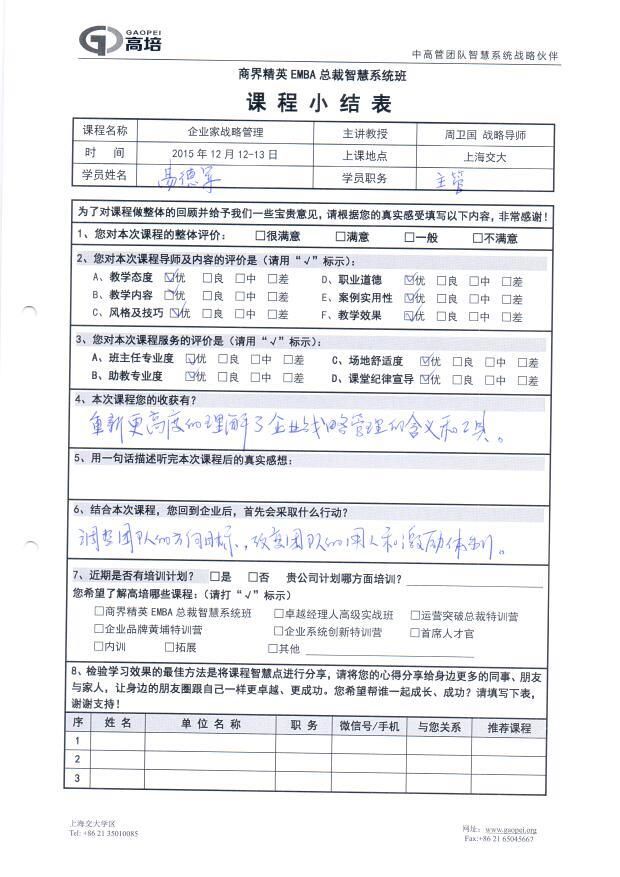 GAOPEI
高培
中高管团队智慧系统战略伙伴
商界精英 EMBA 总裁智慧系统班
课程小结表
课程名称 企业家战略管理 主讲教授 周卫国 战略导师
时 间 2015 年 12 月 12-13 日 上课地点 上海交大
学员姓名 易德军 学员职务 主管
为了对课程做整体的回顾并给予我们一些宝贵意见，请根据您的真实感受填写以下内容，非常感谢！
1、您对本次课程的整体评价： □很满意 □满意 □一般 □不满意
2、您对本次课程导师及内容的评价是（请用“√”标示）：
A、教学态度 ☑优 □良 □中 □差 D、职业道德 ☑优 □良 □中 □差
B、教学内容 ☑优 □良 □中 □差 E、案例实用性 ☑优 □良 □中 □差
C、风格及技巧 ☑优 □良 □中 □差 F、教学效果 ☑优 □良 □中 □差
3、您对本次课程服务的评价是（请用“√”标示）：
A、班主任专业度 ☑优 □良 □中 □差 C、场地舒适度 ☑优 □良 □中 □差
B、助教专业度 ☑优 □良 □中 □差 D、课堂纪律宣导 ☑优 □良 □中 □差
4、本次课程您的收获有？
重新更高度的理解了企业战略管理的含义和工具。
5、用一句话描述听完本次课程后的真实感想：
6、结合本次课程，您回到企业后，首先会采取什么行动？
调整团队的方向目标，改变团队的用人和激励体制。
7、近期是否有培训计划？ □是 □否 贵公司计划哪方面培训？
您希望了解高培哪些课程：（请打“√”标示）
□商界精英 EMBA 总裁智慧系统班 □卓越经理人高级实战班 □运营突破总裁特训营
□企业品牌黄埔特训营 □企业系统创新特训营 □首席人才官
□内训 □拓展 □其他
8、检验学习效果的最佳方法是将课程智慧点进行分享，请将您的心得分享给身边更多的同事、朋友
与家人，让身边的朋友圈跟自己一样更卓越、更成功。您希望帮谁一起成长、成功？请填写下表，
谢谢支持！
序 姓 名 单 位 名 称 职 务 微信号/手机 与您关系 推荐课程
1
2
3
上海交大学区
Tel: +86 21 35010085
网址：www.gaopei.org
Fax:+86 21 65045667